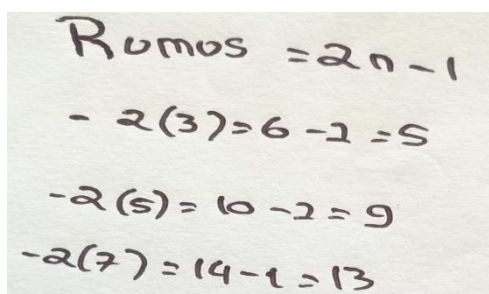 Rumos = 2n - 1
- 2(3) = 6 - 1 = 5
- 2(5) = 10 - 1 = 9
- 2(7) = 14 - 1 = 13